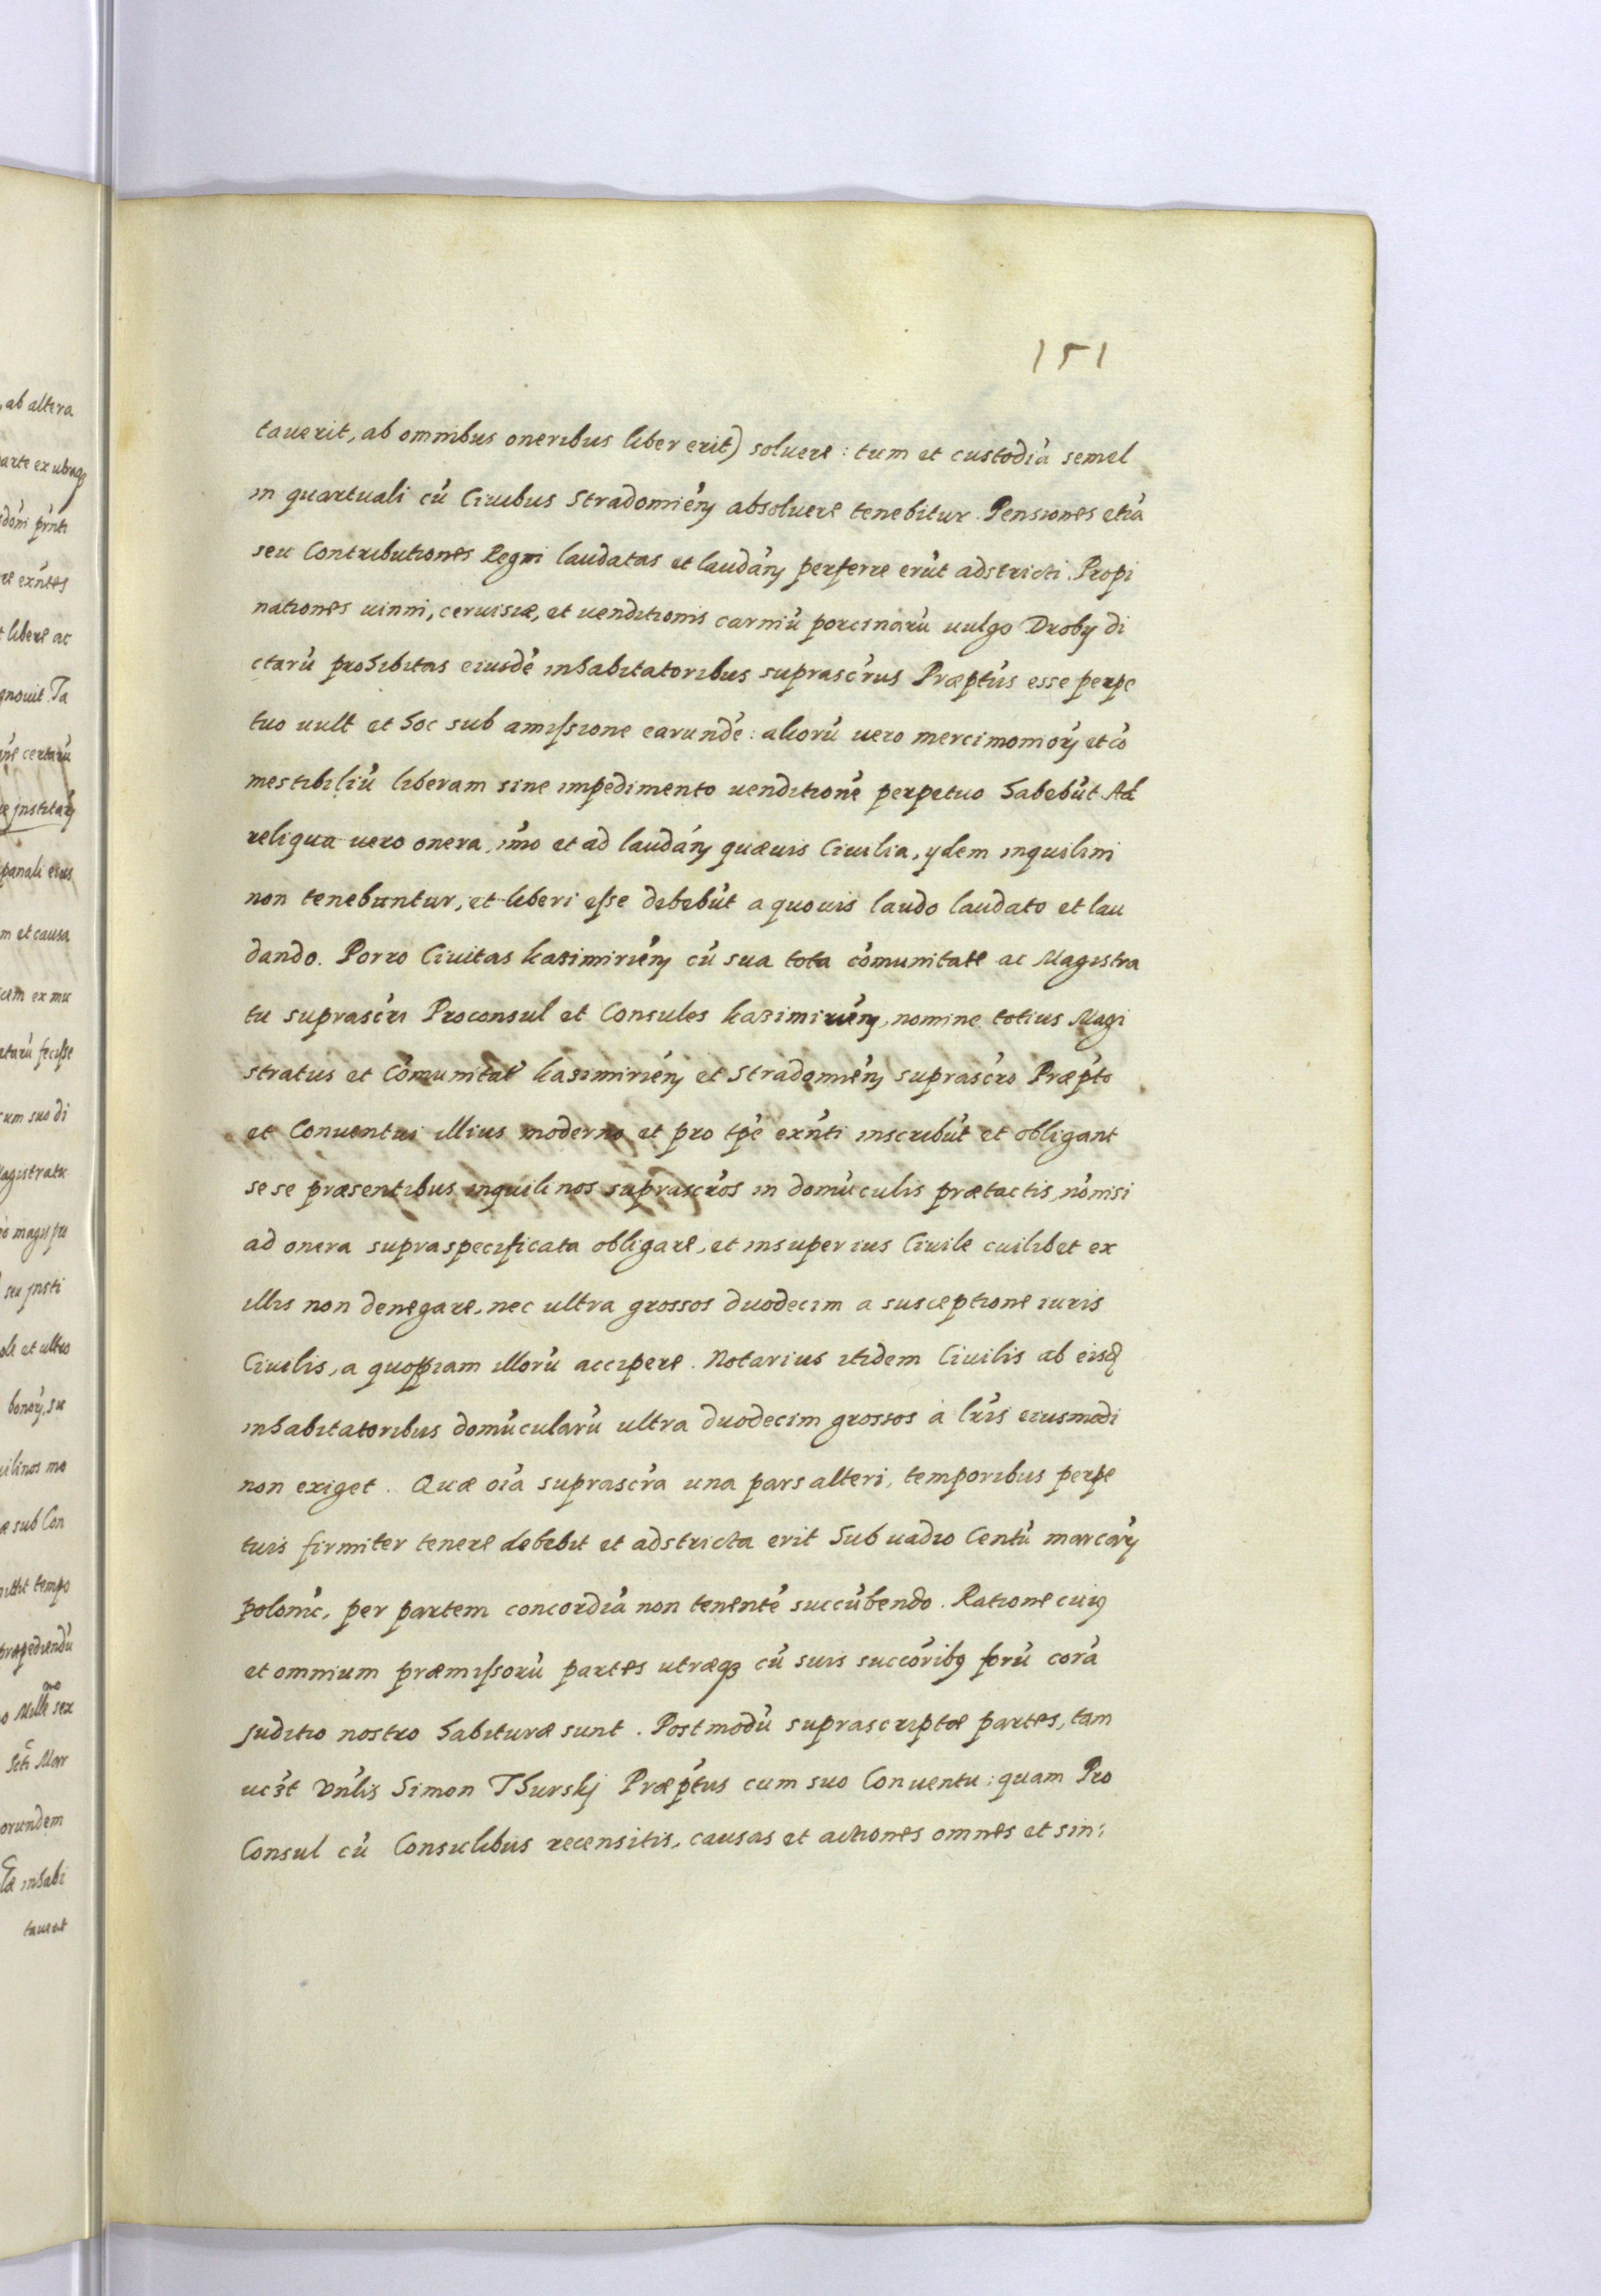 151
tauerit, ab omnibus oneribus liber erit) soluere: tum et custodiā semel
in quartuali cū Ciuibus Stradomień absoluere tenebitur. Pensiones etiā
seu Contributiones Regni laudatas et laudań perferre erūt adstricti. Propi
nationes uinni, ceruisiæ, et uenditionis carniū porcinarū uulgo Droby di
ctarū prohibitas eiusdē inhabitatoribus suprascrus Præptūs esse perpe
tuo uult et hoc sub amissione earundē: aliorū uero mercimonioꝝ et cō
mestibiliū liberam sine impedimento uenditionē perpetuo habebūt Ad
reliqua uero onera, imo et ad laudań quæuis Ciuilia, ydem inquilini
non tenebuntur, et liberi esse debebūt a quouis laudo laudato et lau
dando. Porro Ciuitas Kazimirień cū sua tota cōmunitate ac Magistra
tu suprascri Proconsul et Consules Kazimirień, nomine totius Magi
stratus et Cōmunitatē Kazimirień et Stradomień suprascro Præpto
et Conuentui illius moderno et pro tpē exnti inscribūt et obligant
se se præsentibus inquilinos suprascros in domūculis prætactis, nōnisi
ad onera supraspecificata obligare, et insuper ius Ciuile cuilibet ex
illis non denegare, nec ultra grossos duodecim a susceptione iuris
Ciuilis, a quopiam illorū accipere. Notarius itidem Ciuilis ab eisd
inhabitatoribus domūcularū ultra duodecim grossos a lris eiusmodi
non exiget. Quæ oīa suprascra una pars alteri, temporibus perpe
tuis firmiter tenere debebit et adstricta erit sub uadio Centū marcaꝝ
polonic, per partem concordiā non tenentē succūbendo. Ratione cuiꝰ
et omnium præmissorū partes utræqꝫ cū suis succōribꝰ forū corā
Juditio nostro habituræ sunt. Postmodū suprascriptæ partes, tam
ucꝫt Vnlis Simon Thurskj Præptus cum suo Conuentu: quam Pro
Consul cū Consulibus recensitis, causas et actiones omnes et sin: